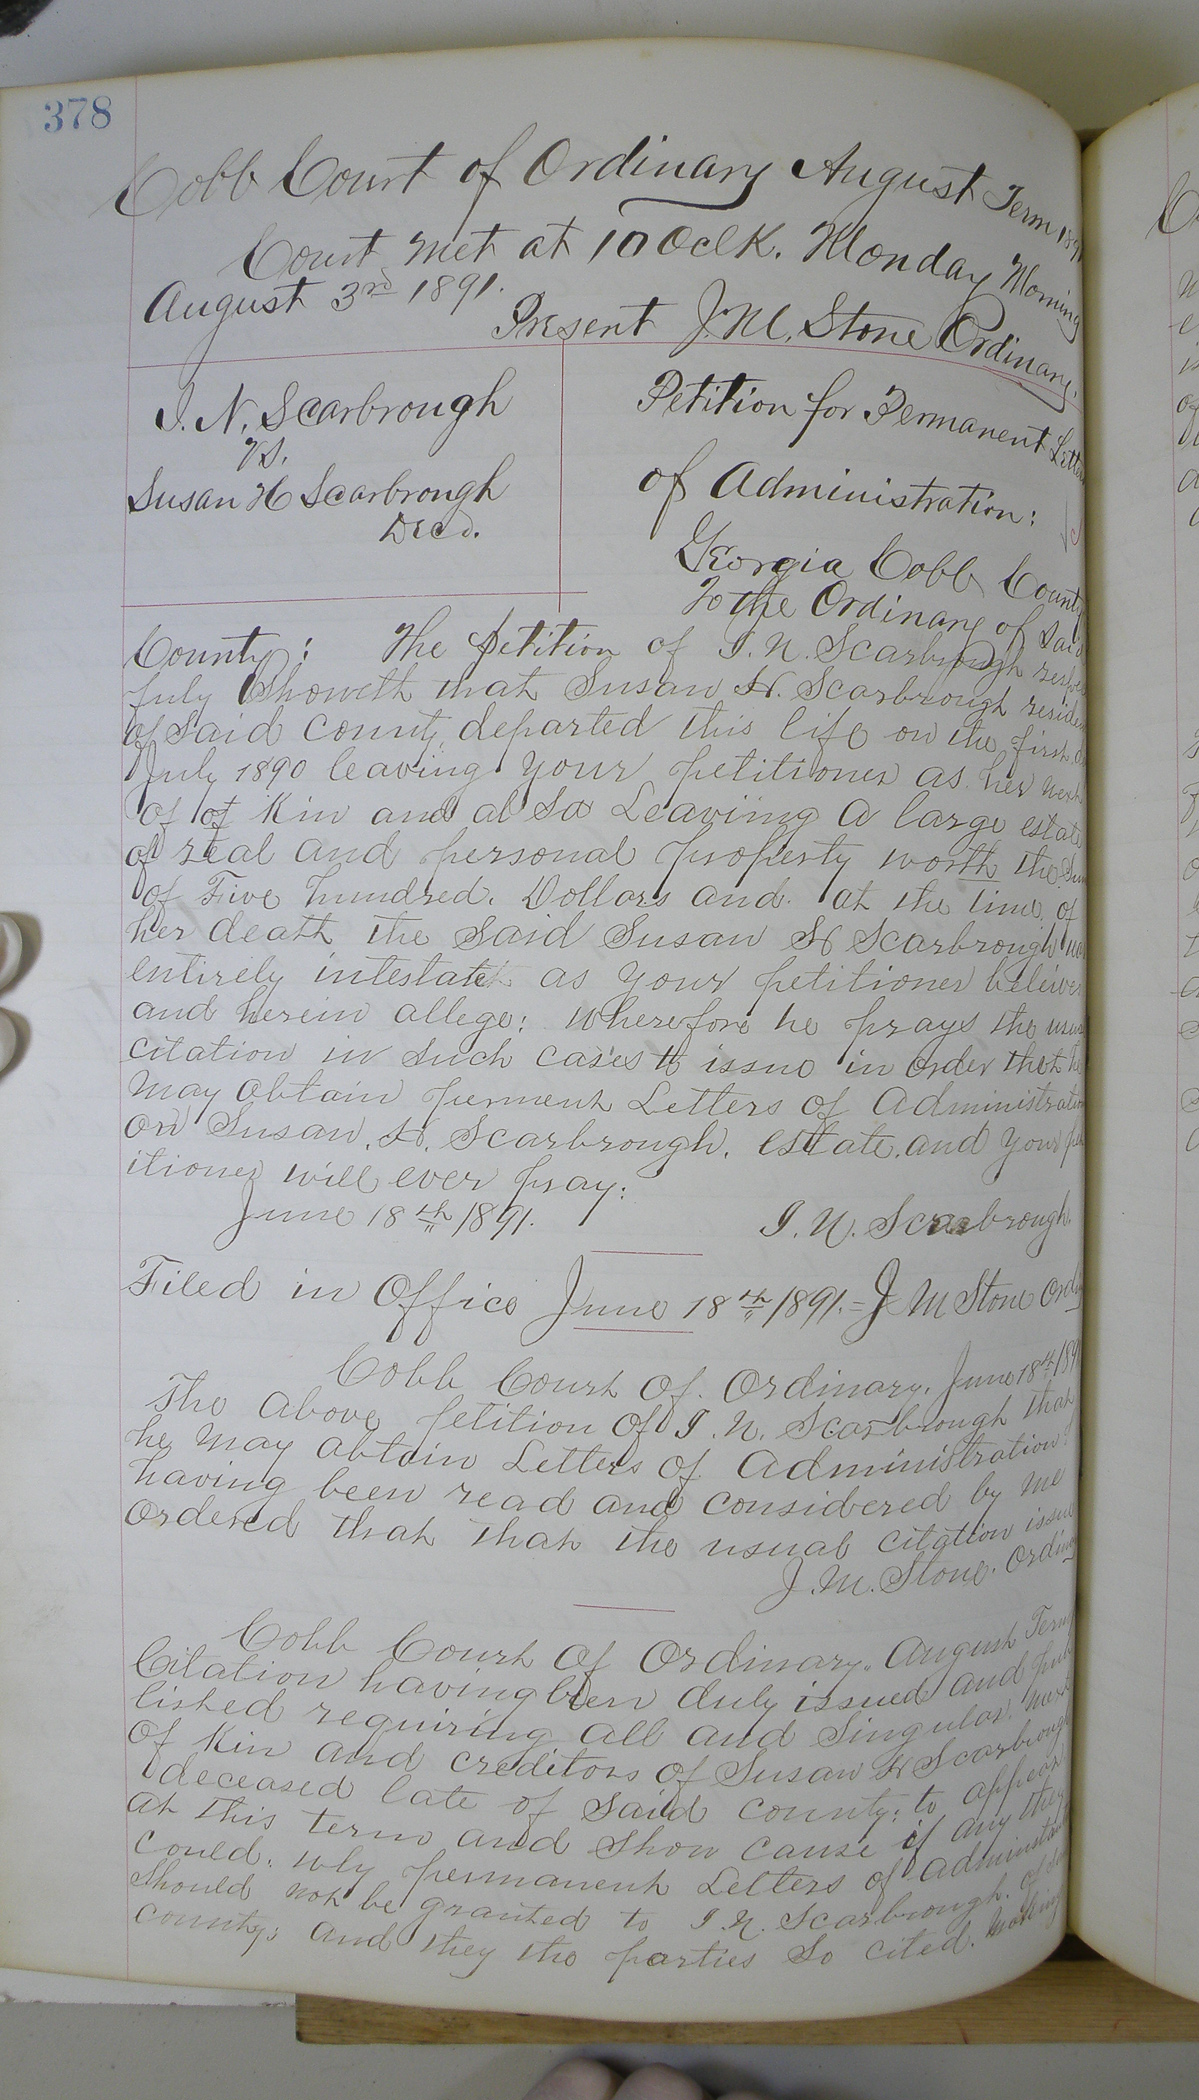 378
Cobb Court of Ordinary August Term 189
Court met at 10 Oclk. Monday Morning
August 3rd 1891.
Present J. M. Stone Ordinary.
I. N. Scarbrough
vs.
Susan H Scarbrough
Decd.
Petition for Permanent Letters
of Administration:
Georgia Cobb County
To the Ordinary of Said
County: The petition of I. N. Scarbrough respect
fully Showeth that Susan H. Scarbrough resident
of Said County departed this life on the first
July 1890 leaving your petitioner as her next
of of Kin and al So Leaving a large estate
of real and personal property worth the Sum
of Five hundred. Dollars and. at the time of
her death the Said Susan H Scarbrough
entirely intestate as your petitioner believes
and herein allege: wherefore he prays the usual
citation in such cases to issue in order that he
may obtain perment Letters of Administration
on Susan. H. Scarbrough. estate. and your pet
itioner will ever pray:
June 18th 1891. I. N. Scarbrough.
Filed in Office June 18th 1891. = J M Stone Ordi
Cobb Court of. Ordinary. June 18th 189
The above petition of I. N. Scarbrough that
he may obtain Letters of Administration
having been read and considered by me
ordered that that the usual citation issue
J. M. Stone. Ordiny
Cobb Court of Ordinary. August Term
Citation having been duly issued and pub
lished requiring all and Singular. next
of Kin and creditors of Susan H Scarbrough
deceased late of Said county: to appear
at this term and show cause if any they
could. why permanent Letters of administ
should not be granted to I. N. Scarbrough. of
county: and they the parties so cited. making